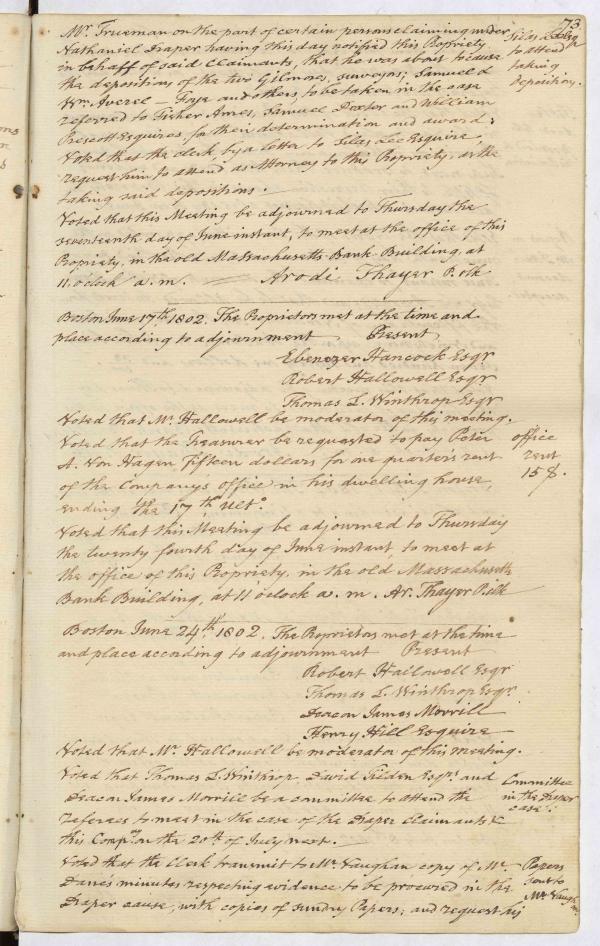 73
Mr. Trueman on the part of certain persons claiming under
Nathaniel Draper having this day notified this Propriety
in behalf of said Claimants, that he was about to cause
the depositions of the two Gilmores, surveyors; Samuel &
Wm. Averel — Foye and others, to be taken in the case
referred to Fisher Ames, Samuel Dexter and William
Prescott Esquires, for their determination and award;
Voted that the clerk, by a letter to Silas Lee Esquire,
request him to attend as Attorney to this Propriety, at the
taking said depositions.
Silas Lee Esqr
to attend
taking
depositions.
Voted that this Meeting be adjourned to Thursday the
seventeenth day of June instant, to meet at the office of this
Propriety, in the old Massachusetts Bank Building, at
11. o'clock a. m. — Arodi Thayer P. clk
Boston June 17th. 1802. The Proprietors met at the time and
place according to adjournment Present
Ebenezer Hancock Esqr
Robert Hallowell Esqr
Thomas L. Winthrop Esqr
Voted that Mr. Hallowell be moderator of this meeting.
Voted that the Treasurer be requested to pay Peter
A. Von Hagen fifteen dollars for one quarter's rent
of the Companys office in his dwelling house,
ending the 17th Ulto.
office
rent
15 $.
Voted that this Meeting be adjourned to Thursday
the twenty fourth day of June instant, to meet at
the office of this Propriety, in the old Massachusetts
Bank Building, at 11 o'clock a. m. Ar. Thayer P. clk
Boston June 24th. 1802. The Proprietors met at the time
and place according to adjournment Present
Robert Hallowell Esqr
Thomas L. Winthrop Esqr
Deacon James Morrill
Henry Hill Esquire
Voted that Mr. Hallowell be moderator of this meeting.
Voted that Thomas L. Winthrop, David Tilden Esqrs. and
Deacon James Morrill be a committee to attend the
referees to meet in the case of the Draper claimants &
this Compy. on the 20th. of July next.
Committee
in the Draper
case.
Voted that the Clerk transmit to Mr. Vaughan copy of Mr.
Dane's minutes respecting evidence to be procured in the
Draper cause, with copies of sundry Papers; and request his
Papers
sent to
Mr. Vaughn